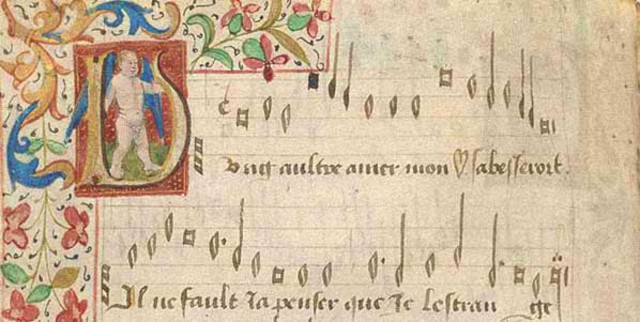 Dvng aultre amer mon ♡ sabesseroit.
Il ne fault Ja penser que Je lestran ge